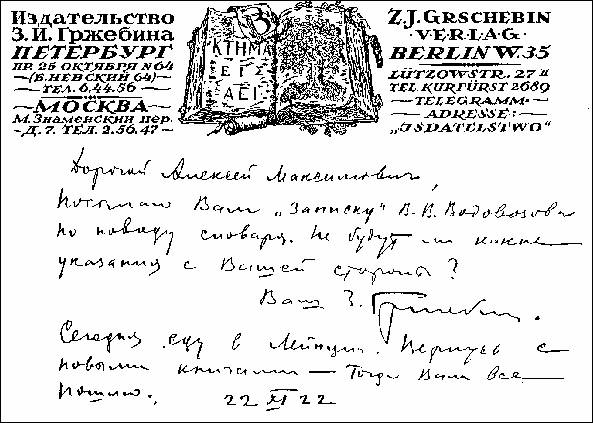 Издательство
З. И. Гржебина
ПЕТЕРБУРГ
ПР 25 ОКТЯБРЯ N 64
—(Б. НЕВСКИЙ 64)—
— ТЕЛ. 6.44.56 —
— МОСКВА —
М. Знаменский пер.
— Д. 7. ТЕЛ. 2.56.47 —
ΚΤΗΜΑ
ΕΙΣ
ΑΕΙ
Z. J. GRSCHEBIN
· VERLAG ·
BERLIN W. 35
LÜTZOWSTR. 27 II
TEL KURFÜRST 2689
— TELEGRAMM —
— ADRESSE: —
„ISDATELSTWO"
Дорогой Алексей Максимович,
Посылаю Вам „Записку" В. В. Водовозова
по поводу словаря. Не будут ли какие
указания с Вашей стороны?
Ваш З. Гржебин.
Сегодня еду в Лейпциг. Вернусь с
новыми книгами — Тогда Вам все
пошлю. 22 XI 22